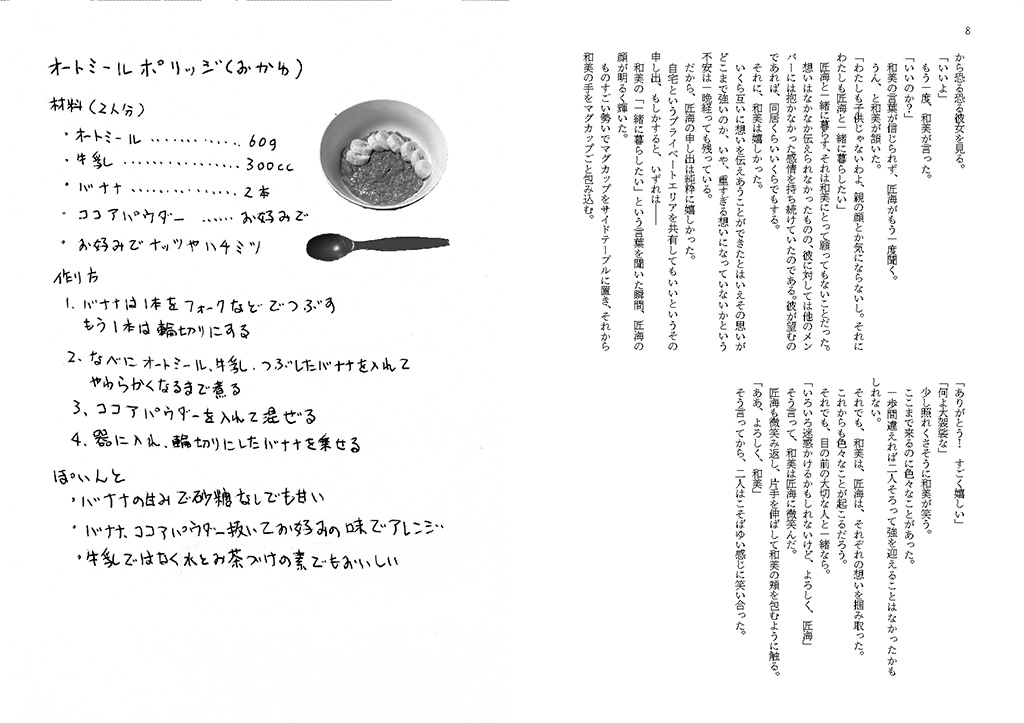 8
から恐る恐る彼女を見る。
「いいよ」
もう一度、和美が言った。
「いいのか？」
和美の言葉が信じられず、匠海がもう一度聞く。
うん、と和美が頷いた。
「わたしも子供じゃないわよ、親の顔とか気にならないし。それに
わたしも匠海と一緒に暮らしたい」
匠海と一緒に暮らす、それは和美にとって願ってもないことだった。
想いはなかなか伝えられなかったものの、彼に対しては他のメン
バーには抱かなかった感情を持ち続けていたのである。彼が望むの
であれば、同居くらいいくらでもする。
それに、和美は嬉しかった。
いくら互いに想いを伝えあうことができたとはいえその思いが
どこまで強いのか、いや、重すぎる想いになっていないかという
不安は一晩経っても残っている。
だから、匠海の申し出は純粋に嬉しかった。
自宅というプライベートエリアを共有してもいいというその
申し出、もしかすると、いずれは――
和美の「一緒に暮らしたい」という言葉を聞いた瞬間、匠海の
顔が明るく輝いた。
ものすごい勢いでマグカップをサイドテーブルに置き、それから
和美の手をマグカップごと包み込む。
「ありがとう！　すごく嬉しい」
「何よ大袈裟な」
少し照れくさそうに和美が笑う。
ここまで来るのに色々なことがあった。
一歩間違えれば二人そろって強を迎えることはなかったかも
しれない。
それでも、和美は、匠海は、それぞれの想いを掴み取った。
これからも色々なことが起こるだろう。
それでも、目の前の大切な人と一緒なら。
「いろいろ迷惑かけるかもしれないけど、よろしく、匠海」
そう言って、和美は匠海に微笑んだ。
匠海も微笑み返し、片手を伸ばして和美の頬を包むように触る。
「ああ、よろしく、和美」
そう言ってから、二人はこそばゆい感じに笑い合った。
オートミールポリッジ(おかゆ)
材料(2人分)
・オートミール ............. 60g
・牛乳 ................ 300cc
・バナナ ............... 2本
・ココアパウダー ...... お好みで
・お好みでナッツやハチミツ
作り方
1. バナナは1本をフォークなどでつぶす
もう1本は輪切りにする
2. なべにオートミール、牛乳、つぶしたバナナを入れて
やわらかくなるまで煮る
3、ココアパウダーを入れて混ぜる
4、器に入れ、輪切りにしたバナナを乗せる
ぽいんと
・バナナの甘みで砂糖なしでも甘い
・バナナ、ココアパウダー抜いてお好みの味でアレンジ
・牛乳ではなく水とお茶づけの素でもおいしい